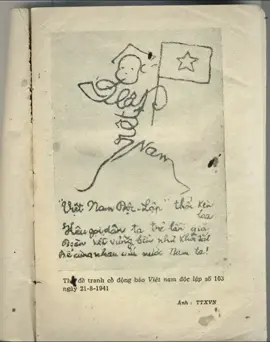 Việt
Nam
"Việt Nam Độc-Lập" thổi kèn loa
Kêu gọi dân ta trẻ lẫn già
Đoàn kết vững bền như khối sắt
Để cùng nhau cứu nước Nam ta!
đề tranh cổ động báo Việt nam độc lập số 163
ngày 21-8-1941
Ảnh : TTXVN